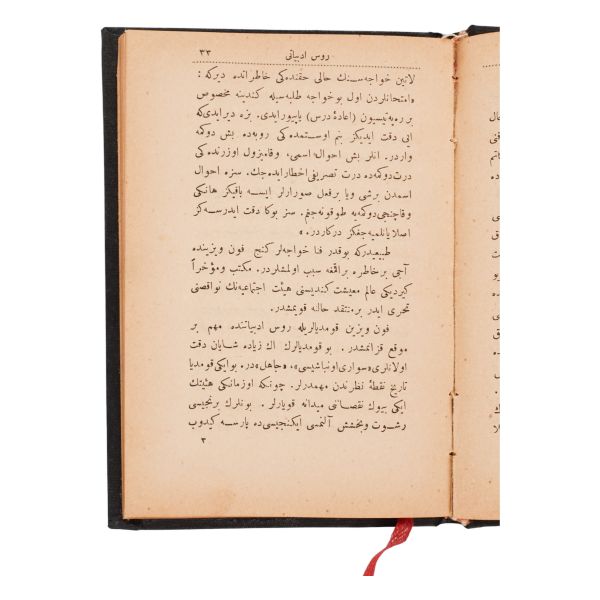 روس ادبیاتی ٣٣
لاتین خواجه‌سنك حالی حقنده‌كی خاطراتنده دیركه :
« امتحانلردن اول بو خواجه طلبه‌سیله كندینه مخصوص
بر ره‌په‌تیسیون ( اعادۀ درس ) یاپیورایدی . بزه دیرایدی‌كه
ایی دقت ایدیكز بنم اوستمده‌كی روبه‌ده بش دوكمه
واردر . انلر بش احوال اسمی ، و قامیزول اوزرنده‌كی
درت دوكمه‌ده درت تصریفی اخطار ایده‌جك . سزه احوال
اسمدن برشی و یا بر فعل صورارلر ایسه باقیكز هانكی
و قاچنجی دوكمه‌یه طوقونه‌جغم . سز بوكا دقت ایدرسه‌كز
اصلا یاكلمیه‌جغكز دركاردر . »
طبیعیدركه بوقدر فنا خواجه‌لر كنج فون ویزینده
آجی بر خاطره براقمغه سبب اولمشلردر . مكتب و مؤخراً
كیردیكی عالم معیشت كندیسنی هیئت اجتماعیه‌نك نواقصنی
تحری ایدر بر منتقد حالنه قویمشدر .
فون ویزین قومدیالریله روس ادبیاتنده مهم بر
موقع قزانمشدر . بو قومدیالرك اك زیاده شایان دقت
اولانلری « سواری اونباشیسی » ، « جاهل » در . بو ایكی قومدیا
تاریخ نقطۀ نظرندن مهمدرلر . چونكه اوزمانكی هیئتك
ایكی بیوك نقصاننی میدانه قویارلر . بونلرك برنجیسی
رشوت و بخشش آلنمسی ایكنجیسی‌ده پارسه كیدوب
٣